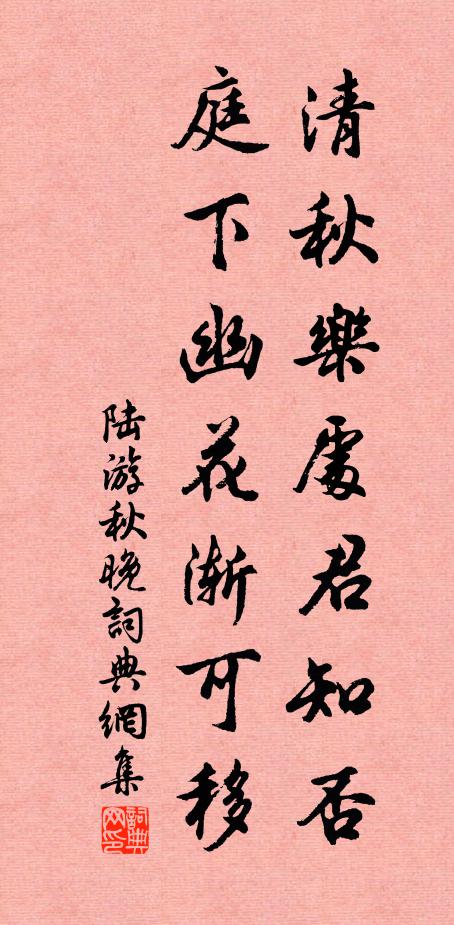 清秋樂處君知否
庭下幽花漸可移
陸游秋晚詞典網集
詞典网印